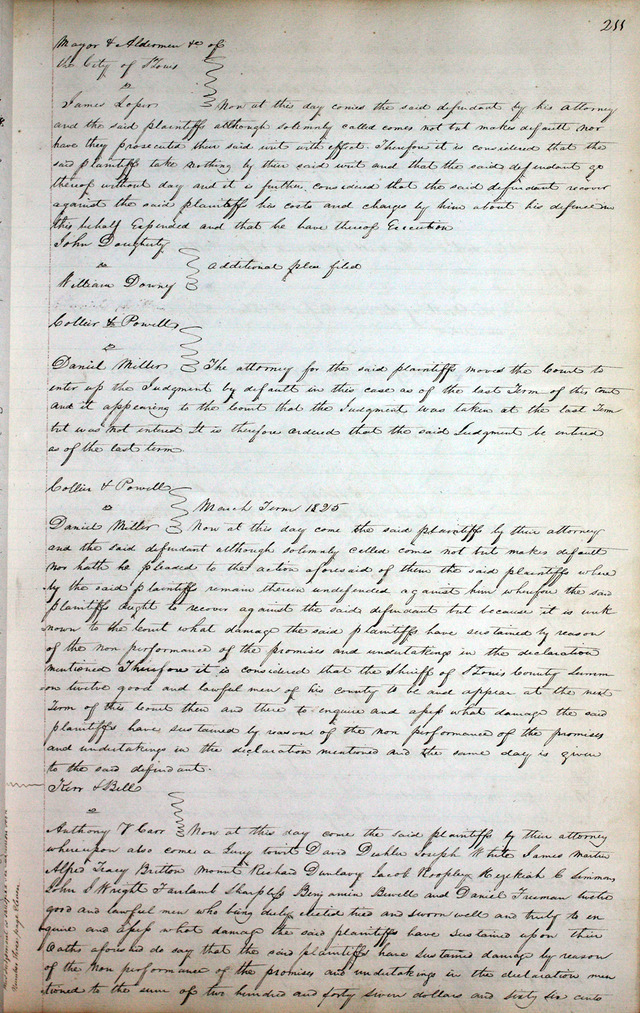 211
Mayor & Aldermen &c of
the City of St Louis
vs
James Loper Now at this day comes the said defendant by his attorney
and the said plaintiffs although solemnly called comes not but makes default nor
have they prosecuted their said writ with effect. Therefore it is considered that the
said plaintiffs take nothing by their said writ and that the said defendant go
thereof without day and it is further considered that the said defendant recover
against the said plaintiffs his costs and charges by him about his defence in
this behalf Expended and that he have thereof Execution
John Dougherty
vs additional plea filed
William Downy
Collier & Powell
vs
Daniel Miller The attorney for the said plaintiffs moved the Court to
enter up the Judgment by default in this case as of the last Term of this court
and it appearing to the Court that the Judgment was taken at the last Term
but was not entered It is therefore ordered that the said Judgment be entered
as of the last term
Collier & Powell
vs March Term 1825
Daniel Miller Now at this day come the said plaintiffs by their attorney
and the said defendant although solemnly called comes not but makes default
nor hath he pleaded to the action aforesaid of them the said plaintiffs where
by the said plaintiffs remain therein undefended against him wherefore the said
plaintiffs ought to recover against the said defendant but because it is unk
nown to the Court what damage the said plaintiffs have sustained by reason
of the non performance of the promises and undertakings in the declaration
mentioned Therefore it is considered that the Sheriff of St Louis County summ
on twelve good and lawful men of his county to be and appear at the next
Term of this Court then and there to enquire and assess what damage the said
plaintiffs have sustained by reasons of the non performance of the promises
and undertakings in the declaration mentioned and the same day is given
to the said defendant.
Kerr & Bell
vs
Anthony V Carr Now at this day come the said plaintiffs by their attorney
whereupon also come a Jury towit David Deihler Joseph White James Martin
Alfred Tracy Britton Mount Richard Dunlavy Jacob Roopley Hezekiah C Simmons
John S Wright Fairland Sharpless Benjamin Bewell and Daniel Freeman twelve
good and lawful men who being duly elected tried and sworn well and truly to en
quire and assess what damage the said plaintiffs have sustained upon their
Oaths aforesaid do say that the said plaintiffs have sustained damage by reason
of the Non performance of the promises and undertakings in the declaration men
tioned to the sum of two hundred and forty seven dollars and sixty six cents